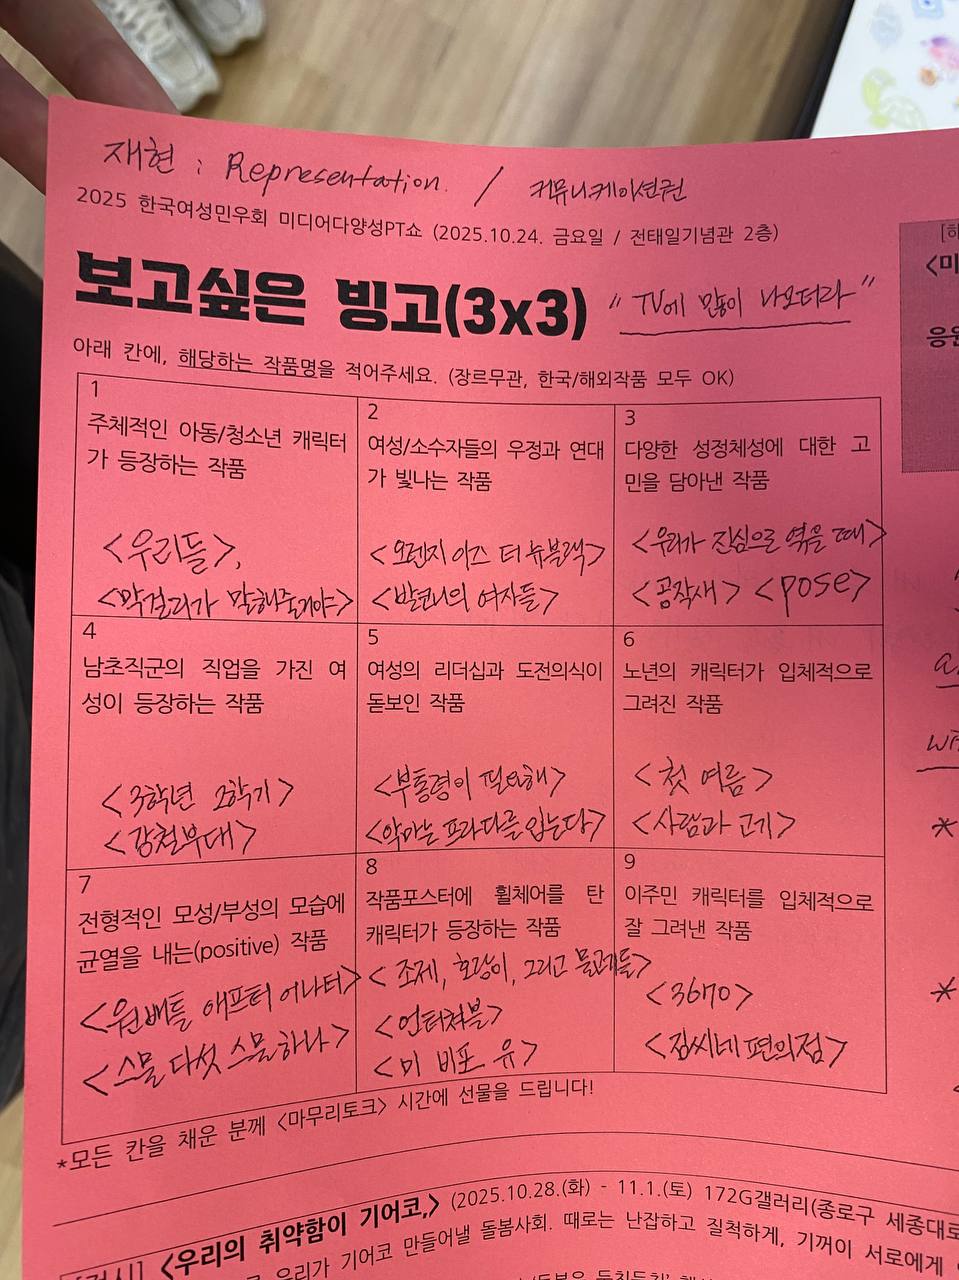 재현 : Representation. / 커뮤니케이션권
2025 한국여성민우회 미디어다양성PT쇼 (2025.10.24. 금요일 / 전태일기념관 2층)
보고싶은 빙고(3x3) “TV에 많이 나오더라”
아래 칸에, 해당하는 작품명을 적어주세요. (장르무관, 한국/해외작품 모두 OK)
1
주체적인 아동/청소년 캐릭터
가 등장하는 작품
<우리들>,
<막걸리가 알려줄거야>
2
여성/소수자들의 우정과 연대
가 빛나는 작품
<오렌지 이즈 더 뉴블랙>
<발코니의 여자들>
3
다양한 성정체성에 대한 고
민을 담아낸 작품
<우리가 진심으로 엮을 때>
<공작새> <pose>
4
남초직군의 직업을 가진 여
성이 등장하는 작품
<3학년 2학기>
<강철부대>
5
여성의 리더십과 도전의식이
돋보인 작품
<부통령이 필요해>
<악마는 프라다를 입는다>
6
노년의 캐릭터가 입체적으로
그려진 작품
<첫 여름>
<사람과 고기>
7
전형적인 모성/부성의 모습에
균열을 내는(positive) 작품
<원 배틀 애프터 어나더>
<스물 다섯 스물 하나>
8
작품포스터에 휠체어를 탄
캐릭터가 등장하는 작품
<조제, 호랑이, 그리고 물고기들>
<언터쳐블>
<미 비포 유>
9
이주민 캐릭터를 입체적으로
잘 그려낸 작품
<3670>
<김씨네 편의점>
*모든 칸을 채운 분께 <마무리토크> 시간에 선물을 드립니다!
<우리의 취약함이 기어코,> (2025.10.28.(화) - 11.1.(토) 172G갤러리(종로구 세종대로
우리가 기어코 만들어낼 돌봄사회. 때로는 난잡하고 질척하게, 기꺼이 서로에게